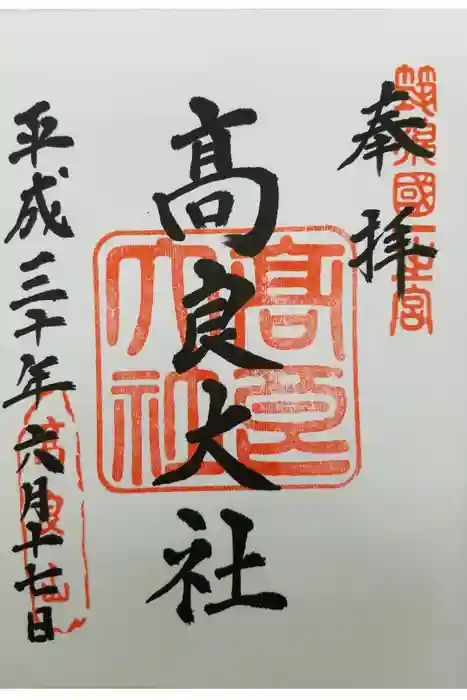 奉拝
筑後國一之宮
髙良大社
高良大社
平成三十年六月十七日